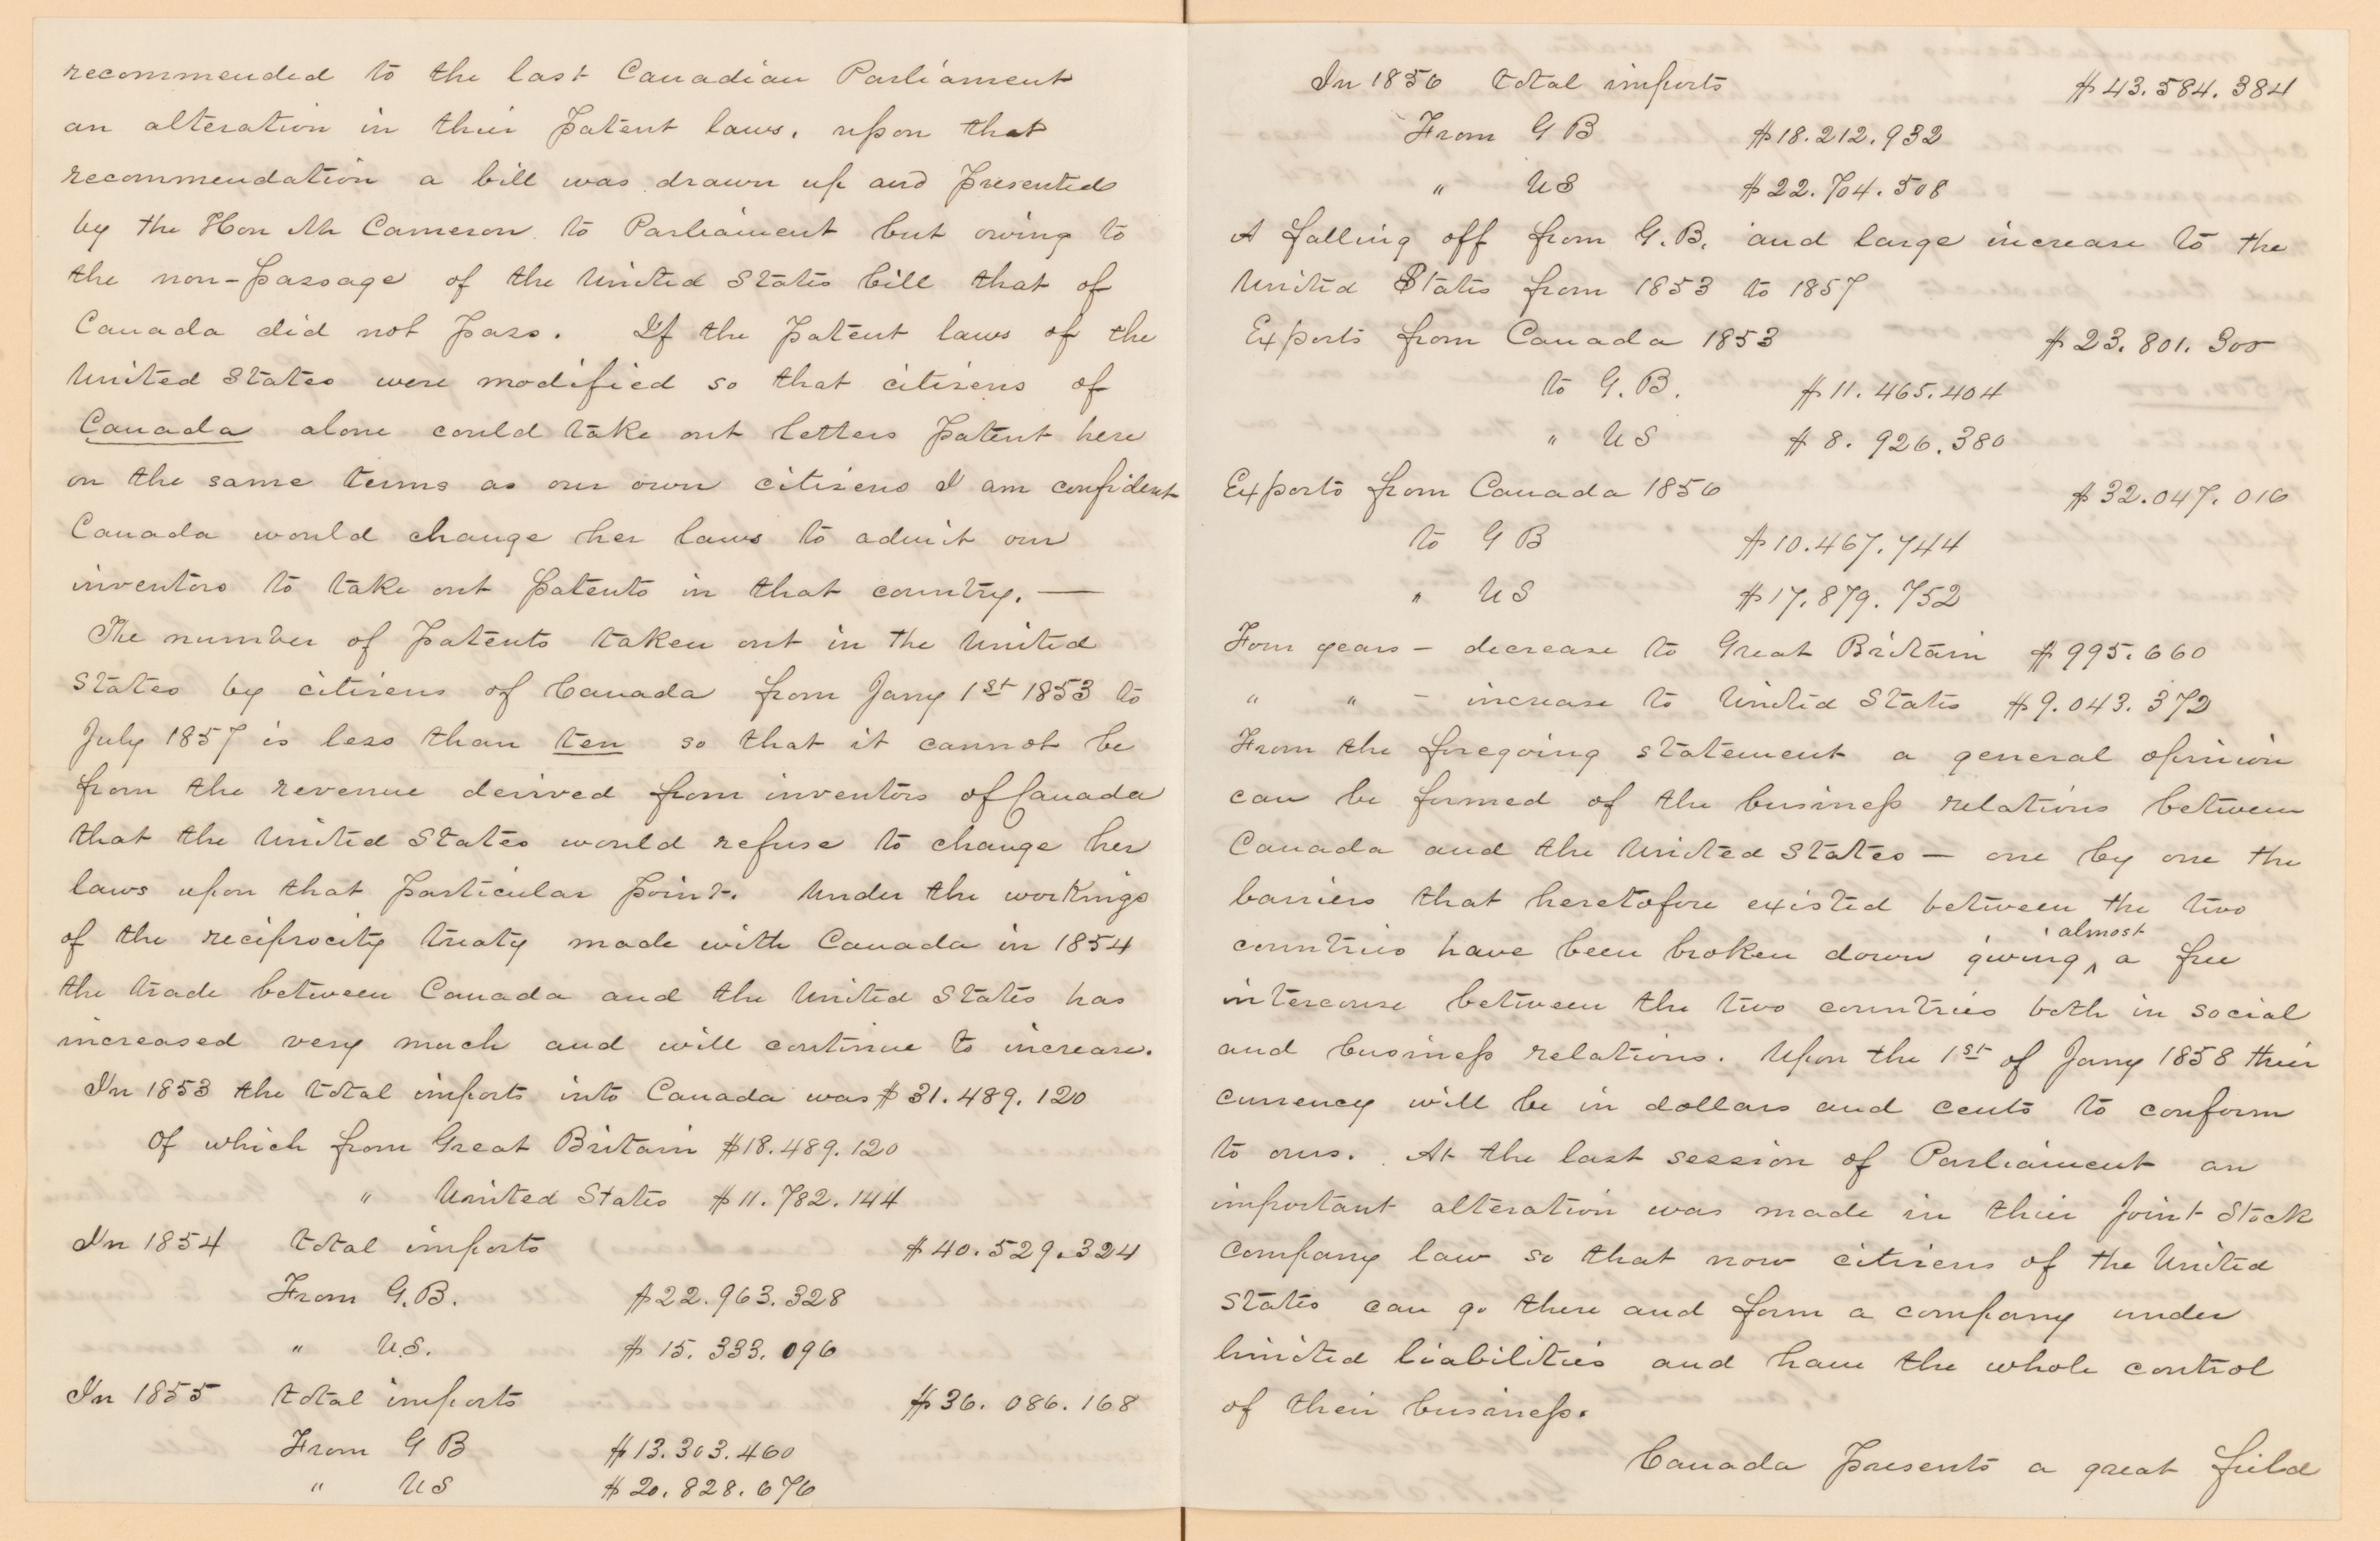 recommended to the last Canadian Parliament
an alteration in their Patent laws, upon that
recommendation a bill was drawn up and Presented
by the Hon Mr Cameron to Parliament but owing to
the non-passage of the United States bill that of
Canada did not Pass. If the Patent laws of the
United States were modified so that citizens of
Canada alone could take out letters Patent here
on the same terms as our own citizens I am confident
Canada would change her laws to admit our
inventors to take out Patents in that country. —
The number of Patents taken out in the United
States by citizens of Canada from Jany 1st 1853 to
July 1857 is less than ten so that it cannot be
from the revenue derived from inventors of Canada
that the United States would refuse to change her
laws upon that Particular Point. Under the workings
of the reciprocity treaty made with Canada in 1854
the trade between Canada and the United States has
increased very much and will continue to increase.
In 1853 the total imports into Canada was $31.489.120
Of which from Great Britain $18.489.120
" United States $11.782.144
In 1854 total imports $40.529.324
From G.B. $22.963.328
" U.S. $15.333.096
In 1855 total imports $36.086.168
From G B $13.303.460
" US $20.828.676
In 1856 total imports $43.584.384
From G B $18.212.932
" US $22.704.508
A falling off from G.B. and large increase to the
United States from 1853 to 1857
Exports from Canada 1853 $23.801.300
to G.B. $11.465.404
" US $8.926.380
Exports from Canada 1856 $32.047.016
to G B $10.467.744
" US $17.879.752
Four years - decrease to Great Britain $995.660
" " - increase to United States $9.043.372
From the foregoing statement a general opinion
can be formed of the business relations between
Canada and the United States — one by one the
barriers that heretofore existed between the two
countries have been broken down giving ^ almost a free
intercourse between the two countries both in social
and business relations. Upon the 1st of Jany 1858 their
currency will be in dollars and cents to conform
to ours. At the last session of Parliament an
important alteration was made in their Joint Stock
Company law so that now citizens of the United
States can go there and form a company under
limited liabilities and have the whole control
of their business.
Canada Presents a great field